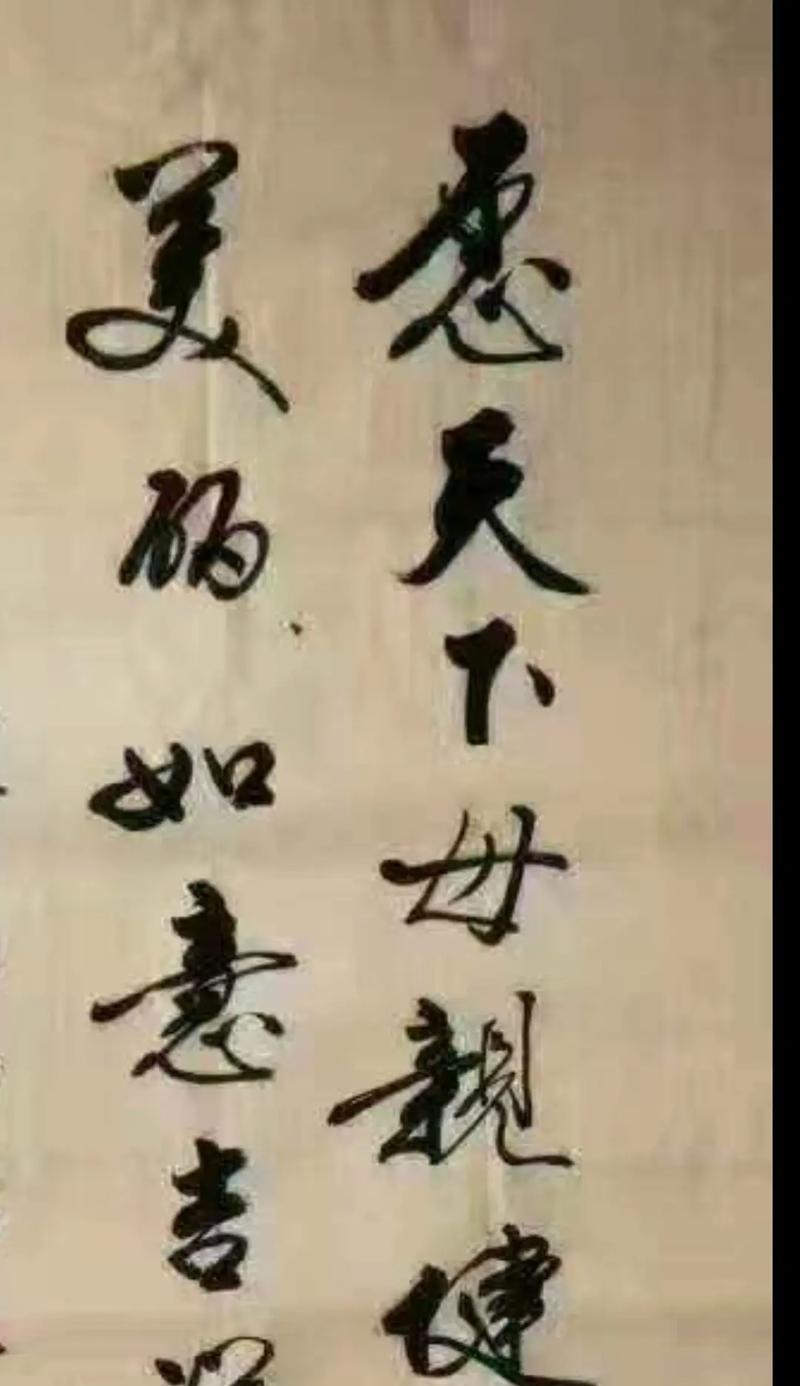 愿天下母親健
美丽如意吉